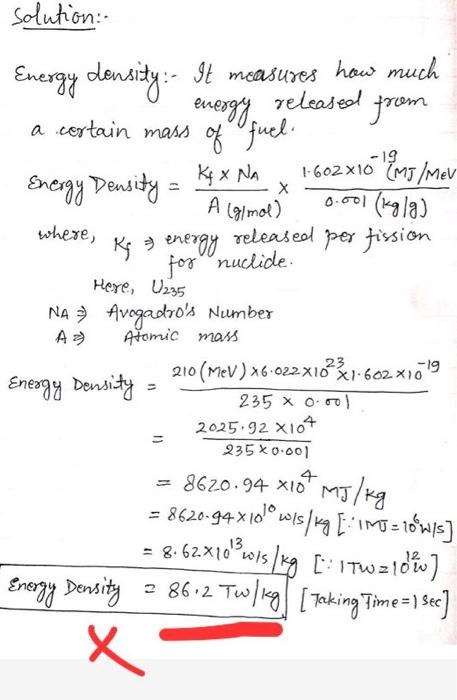 Solution:-
Energy density:- It measures how much
energy released from
a certain mass of fuel.
Energy Density = Kf x NA / A (g/mol) x 1.602x10^-19 (MJ/MeV) / 0.001 (kg/g)
where, Kf ⇒ energy released per fission
for nuclide.
Here, U235
NA ⇒ Avogadro's Number
A ⇒ Atomic mass
Energy Density = 210 (MeV) x 6.022x10^23 x 1.602x10^-19 / 235 x 0.001
= 2025.92 x10^4 / 235 x 0.001
= 8620.94 x10^4 MJ/kg
= 8620.94 x10^10 W/s/kg [∵ 1MJ = 10^6 W/s]
= 8.62x10^13 W/s/kg [∵ 1TW = 10^12 W]
Energy Density = 86.2 TW/kg [Taking Time = 1 Sec]
X